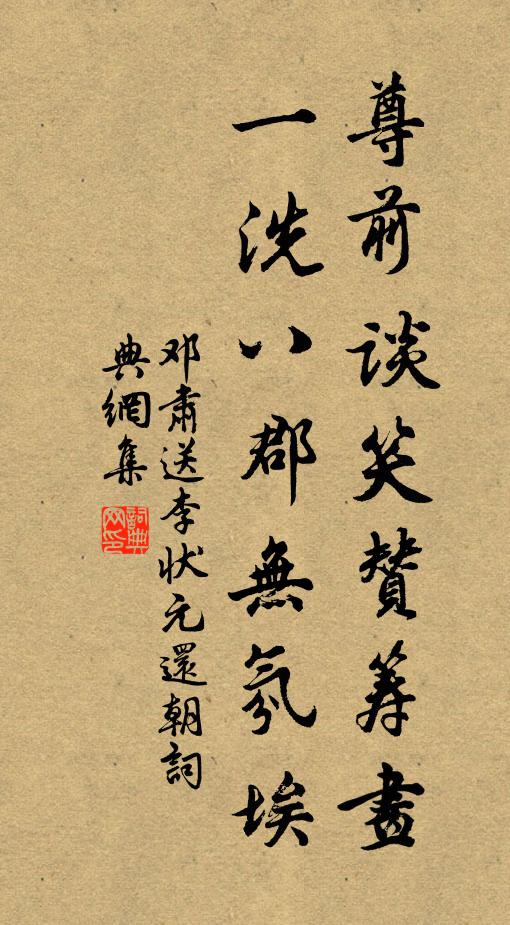 尊前談笑贊筹畫
一洗八郡無氛埃
邓肅送李狀元還朝詞
典網集
詞典網印